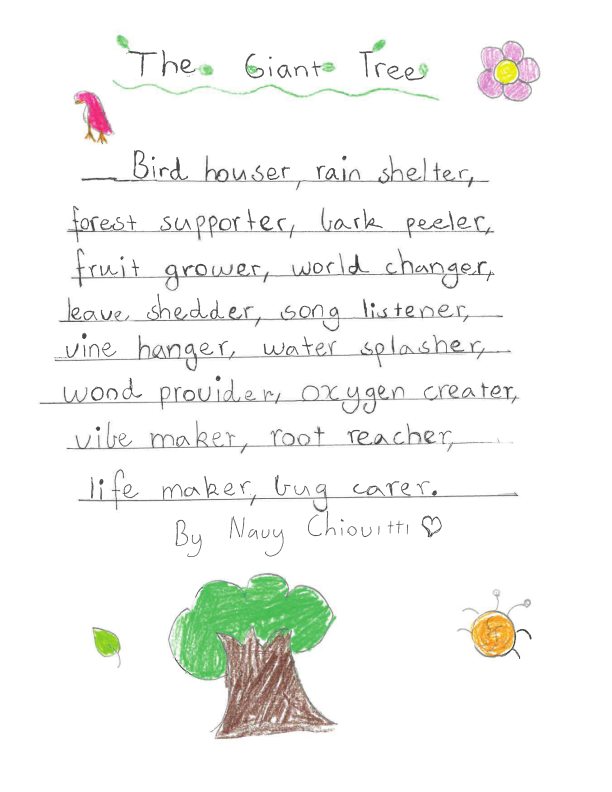 The Giant Tree
Bird houser, rain shelter,
forest supporter, bark peeler,
fruit grower, world changer,
leave shedder, song listener,
vine hanger, water splasher,
wood provider, oxygen creater,
vibe maker, root reacher,
life maker, bug carer.
By Navy Chiovitti